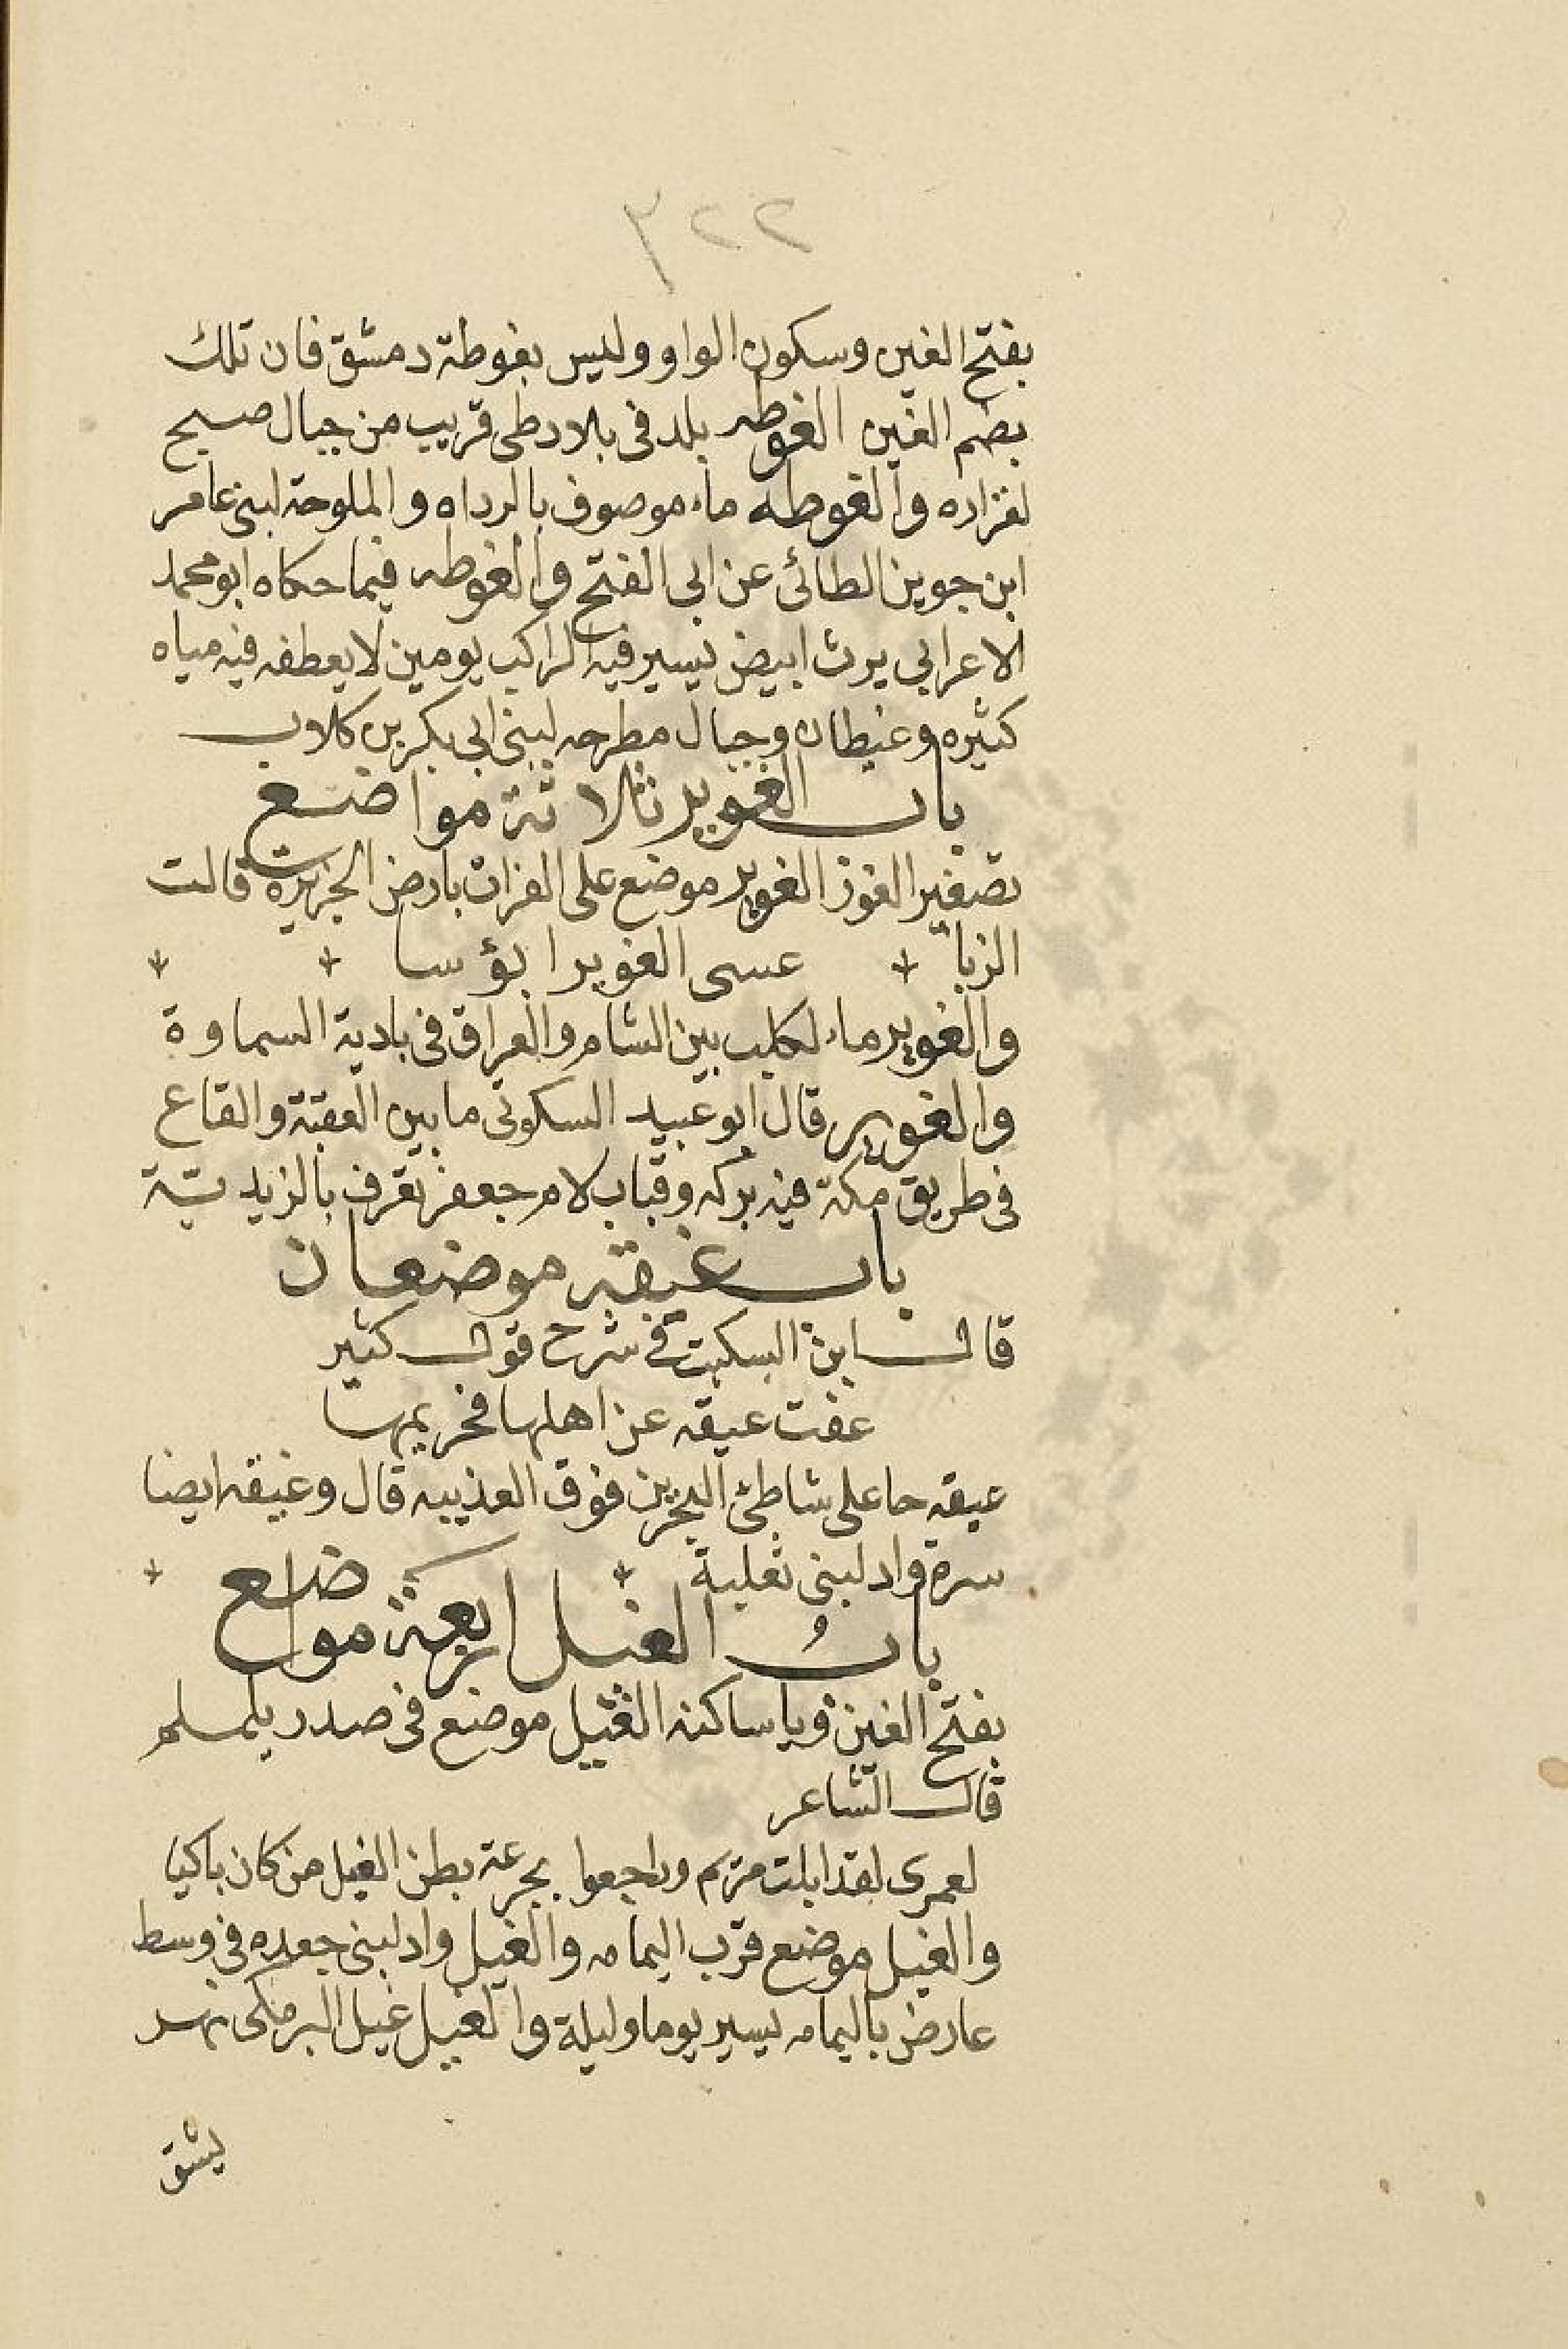 ٣٢٢
بفتح الغين وسكون الواو وليس بغوطة دمشق فان تلك
بضم الغين الغوطه بلد فى بلاد طى قريب من جبال صبح
لفزاره والغوطه ماء موصوف بالرداه والملوحة لبنى عامر
ابن جوين الطائى عن ابى الفتح والغوطه فيما حكاه ابو محمد
الاعرابي برث ابيض تسير فيه الراكب يومين لا يعطفه فيه مياه
كثيره وغيطان وجبال مطرحه لبنى ابى بكر بن كلاب
باب الغوير ثلاثة مواضع
تصغير الغوز الغوير موضع على الفرات بارض الجزيرة قالت
الزباء عسى الغوير ابؤسا
والغوير ماء لكلب بين الشام والعراق فى بادية السماوة
والغوير قال ابو عبيد السكونى ما بين العقبة والقاع
فى طريق مكة فيه بركه وقباب لام جعفر تعرف بالزبيدية
باب غيقه موضعان
قال ابن السكيت فى شرح قول كثير
عفت عيقه عن اهلها فخريمها
عيقه حما على شاطئ البحرين فوق العذيبه قال وغيقه ايضا
سرة واد لبنى ثعلبة
باب الغيل اربعة مواضع
بفتح الغين ويا ساكنه الغيل موضع فى صدر يلملم
قال الشاعر
لعمرى لقد ابلت مزيم وراجعوا بجرعة بطن الغيل من كان باكيا
والغيل موضع قرب اليمامه والغيل واد لبنى جعده فى وسط
عارض باليمامه يسير يوما وليلة والغيل غيل البرمكى نهر
يشق